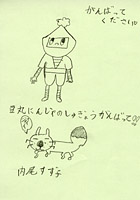 がんばって
ください
豆丸にんじゃのしゅぎょうがんばって
内尾すず子